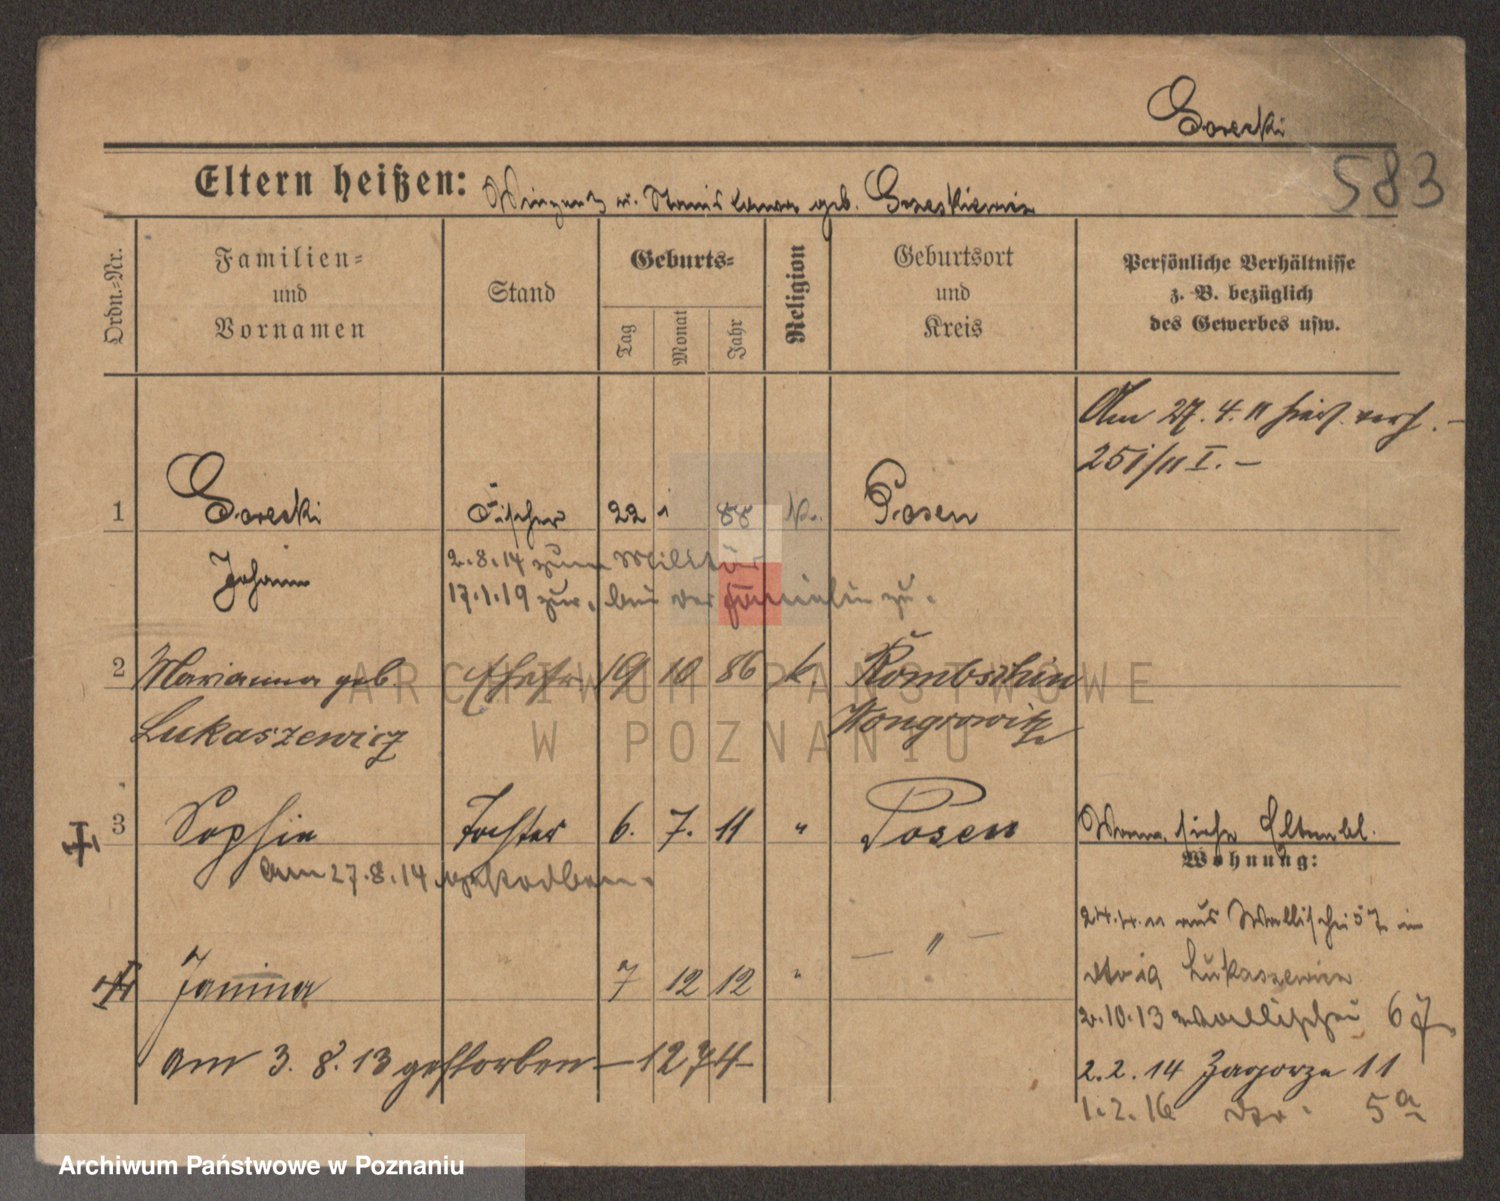 Gorecki
583
Eltern heißen: Winzent u. Stanislawa geb.
Ordn.-Nr.
Familien- und Vornamen
Stand
Geburts-
Tag
Monat
Jahr
Religion
Geburtsort und Kreis
Persönliche Verhältnisse
z. B. bezüglich
des Gewerbes usw.
Am 27.4.11 hier verh. –
251/11 I. –
1 Gorecki Tischler 22 1 88 k. Posen
Johann
2.8.14 zum Militär
17.1.19 zur. bei der Familie zu.
2 Marianna geb. Ehefr. 19 10 86 k.
Lukaszewicz Wongrowitz
3 Sophie Tochter 6. 7. 11 " Posen
siehe Elternbl.
am 27.8.14 gestorben.
Wohnung:
24.4.11 aus Wallischei 57 in
Janina 7 12 12 " — " —
Lukaszewicz
2.10.13 Wallischei 67
am 3.8.13 gestorben – 1274
2.2.14 Zagorze 11
1.2.16 5a
ARCHIWUM PAŃSTWOWE
W POZNANIU
Archiwum Państwowe w Poznaniu